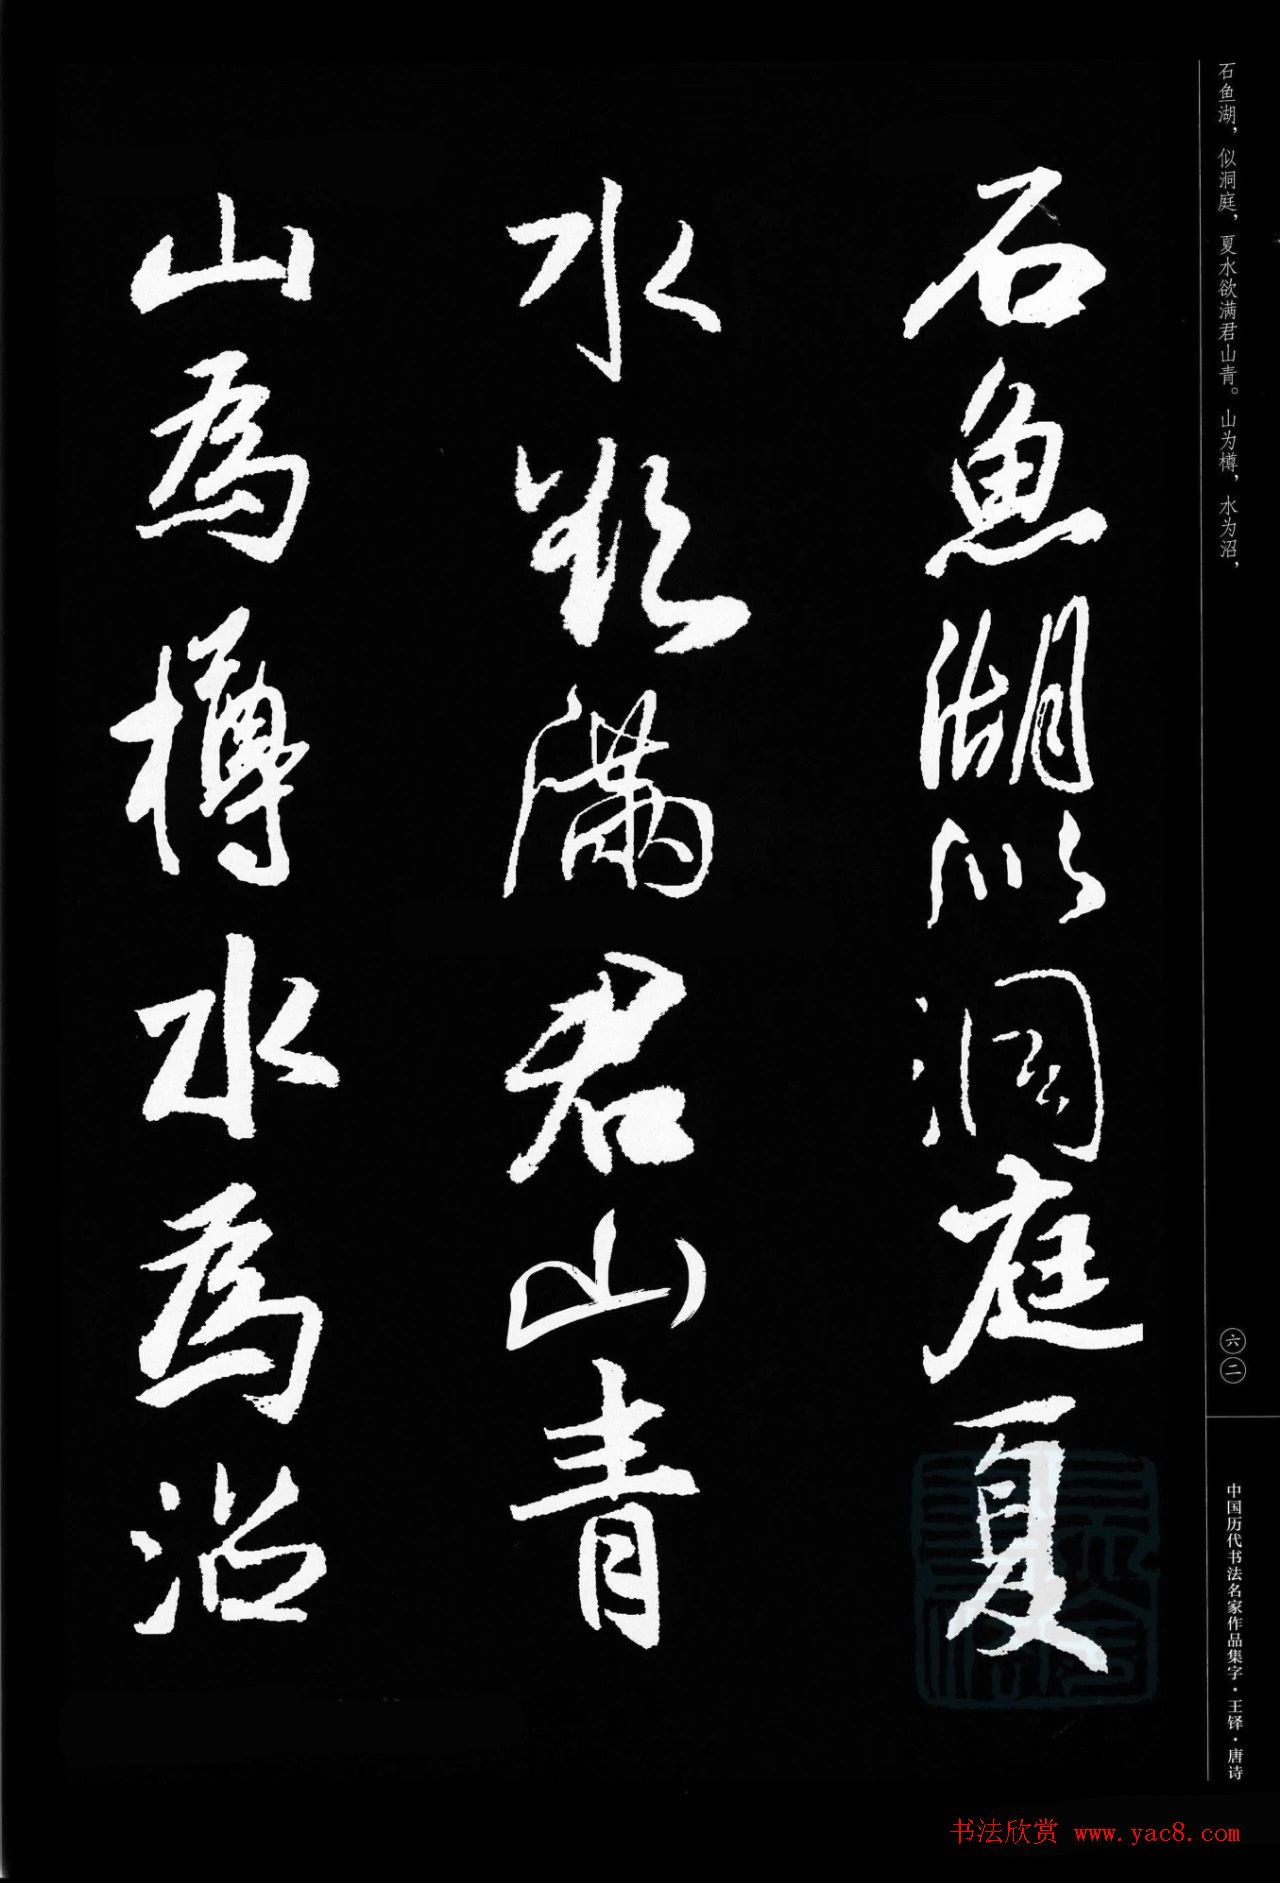 石魚湖似洞庭夏
水欲滿君山青
山為樽水為沼
石鱼湖，似洞庭，夏水欲满君山青。山为樽，水为沼，
六二
中国历代书法名家作品集字·王铎·唐诗
书法欣赏 www.yac8.com